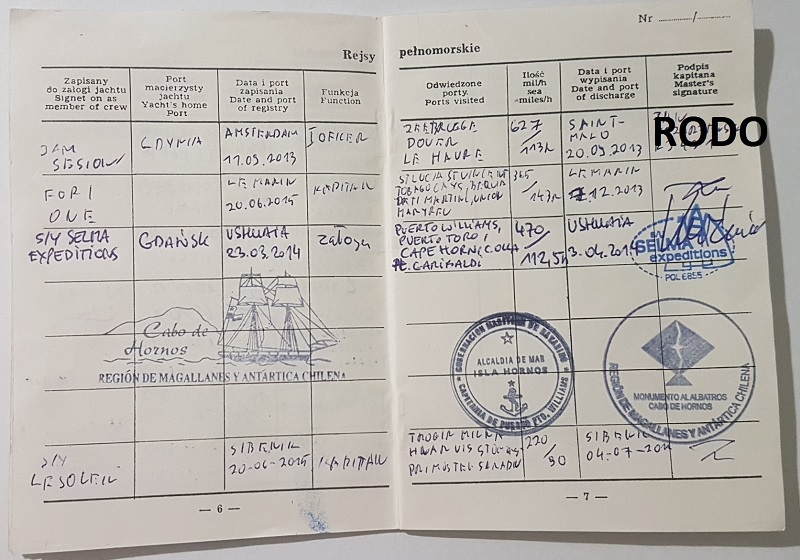 Rejsy
Zapisany
do załogi jachtu
Signet on as
member of crew
Port
macierzysty
jachtu
Yacht's home
Port
Data i port
zapisania
Date and port
of registry
Funkcja
Function
JAM
SESION
GDYNIA
AMSTERDAM
11.09.2013
I OFICER
FORI
ONE
LE MARIN
20.06.2015
KAPITAN
S/Y SELMA
EXPEDITIONS
GDAŃSK
USHUAIA
23.03.2014
załoga
Cabo de
Hornos
REGIÓN DE MAGALLANES Y ANTÁRTICA CHILENA
S/Y
LE SOLEIL
SIBENIK
20-06-2015
KAPITAN
— 6 —
Nr
pełnomorskie
Odwiedzone
porty
Ports visited
Ilość
mil/h
sea
miles/h
Data i port
wypisania
Date and port
of discharge
Podpis
kapitana
Master's
signature
ZEEBRUGGE
DOVER
LE HAVRE
627
113h
SAINT-
MALO
20.09.2013
RODO
ST LUCIA ST VINCENT
TOBAGO CAYS, BEQUIA
PETI MARTINI, UNION
MAYREU
143h
LE MARIN
12.2013
PUERTO WILLIAMS,
PUERTO TORO,
CAPE HORN,
PE. GARIBALDI
470
112,5h
USHUAIA
SELMA
expeditions
POL 6855
GOBERNACION MARITIMA DE NAVARINO
ALCALDIA DE MAR
ISLA HORNOS
CAPITANIA DE PUERTO PTO. WILLIAMS
MONUMENTO AL ALBATROS
CABO DE HORNOS
REGIÓN DE MAGALLANES Y ANTÁRTICA CHILENA
TROGIR MILNA
HVAR VIS
PRIMOSTEN SKRADIN
220
90
SIBENIK
04-07-201
— 7 —